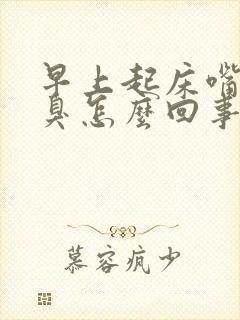 早上起床嘴
臭怎麼回事
慕容疯少